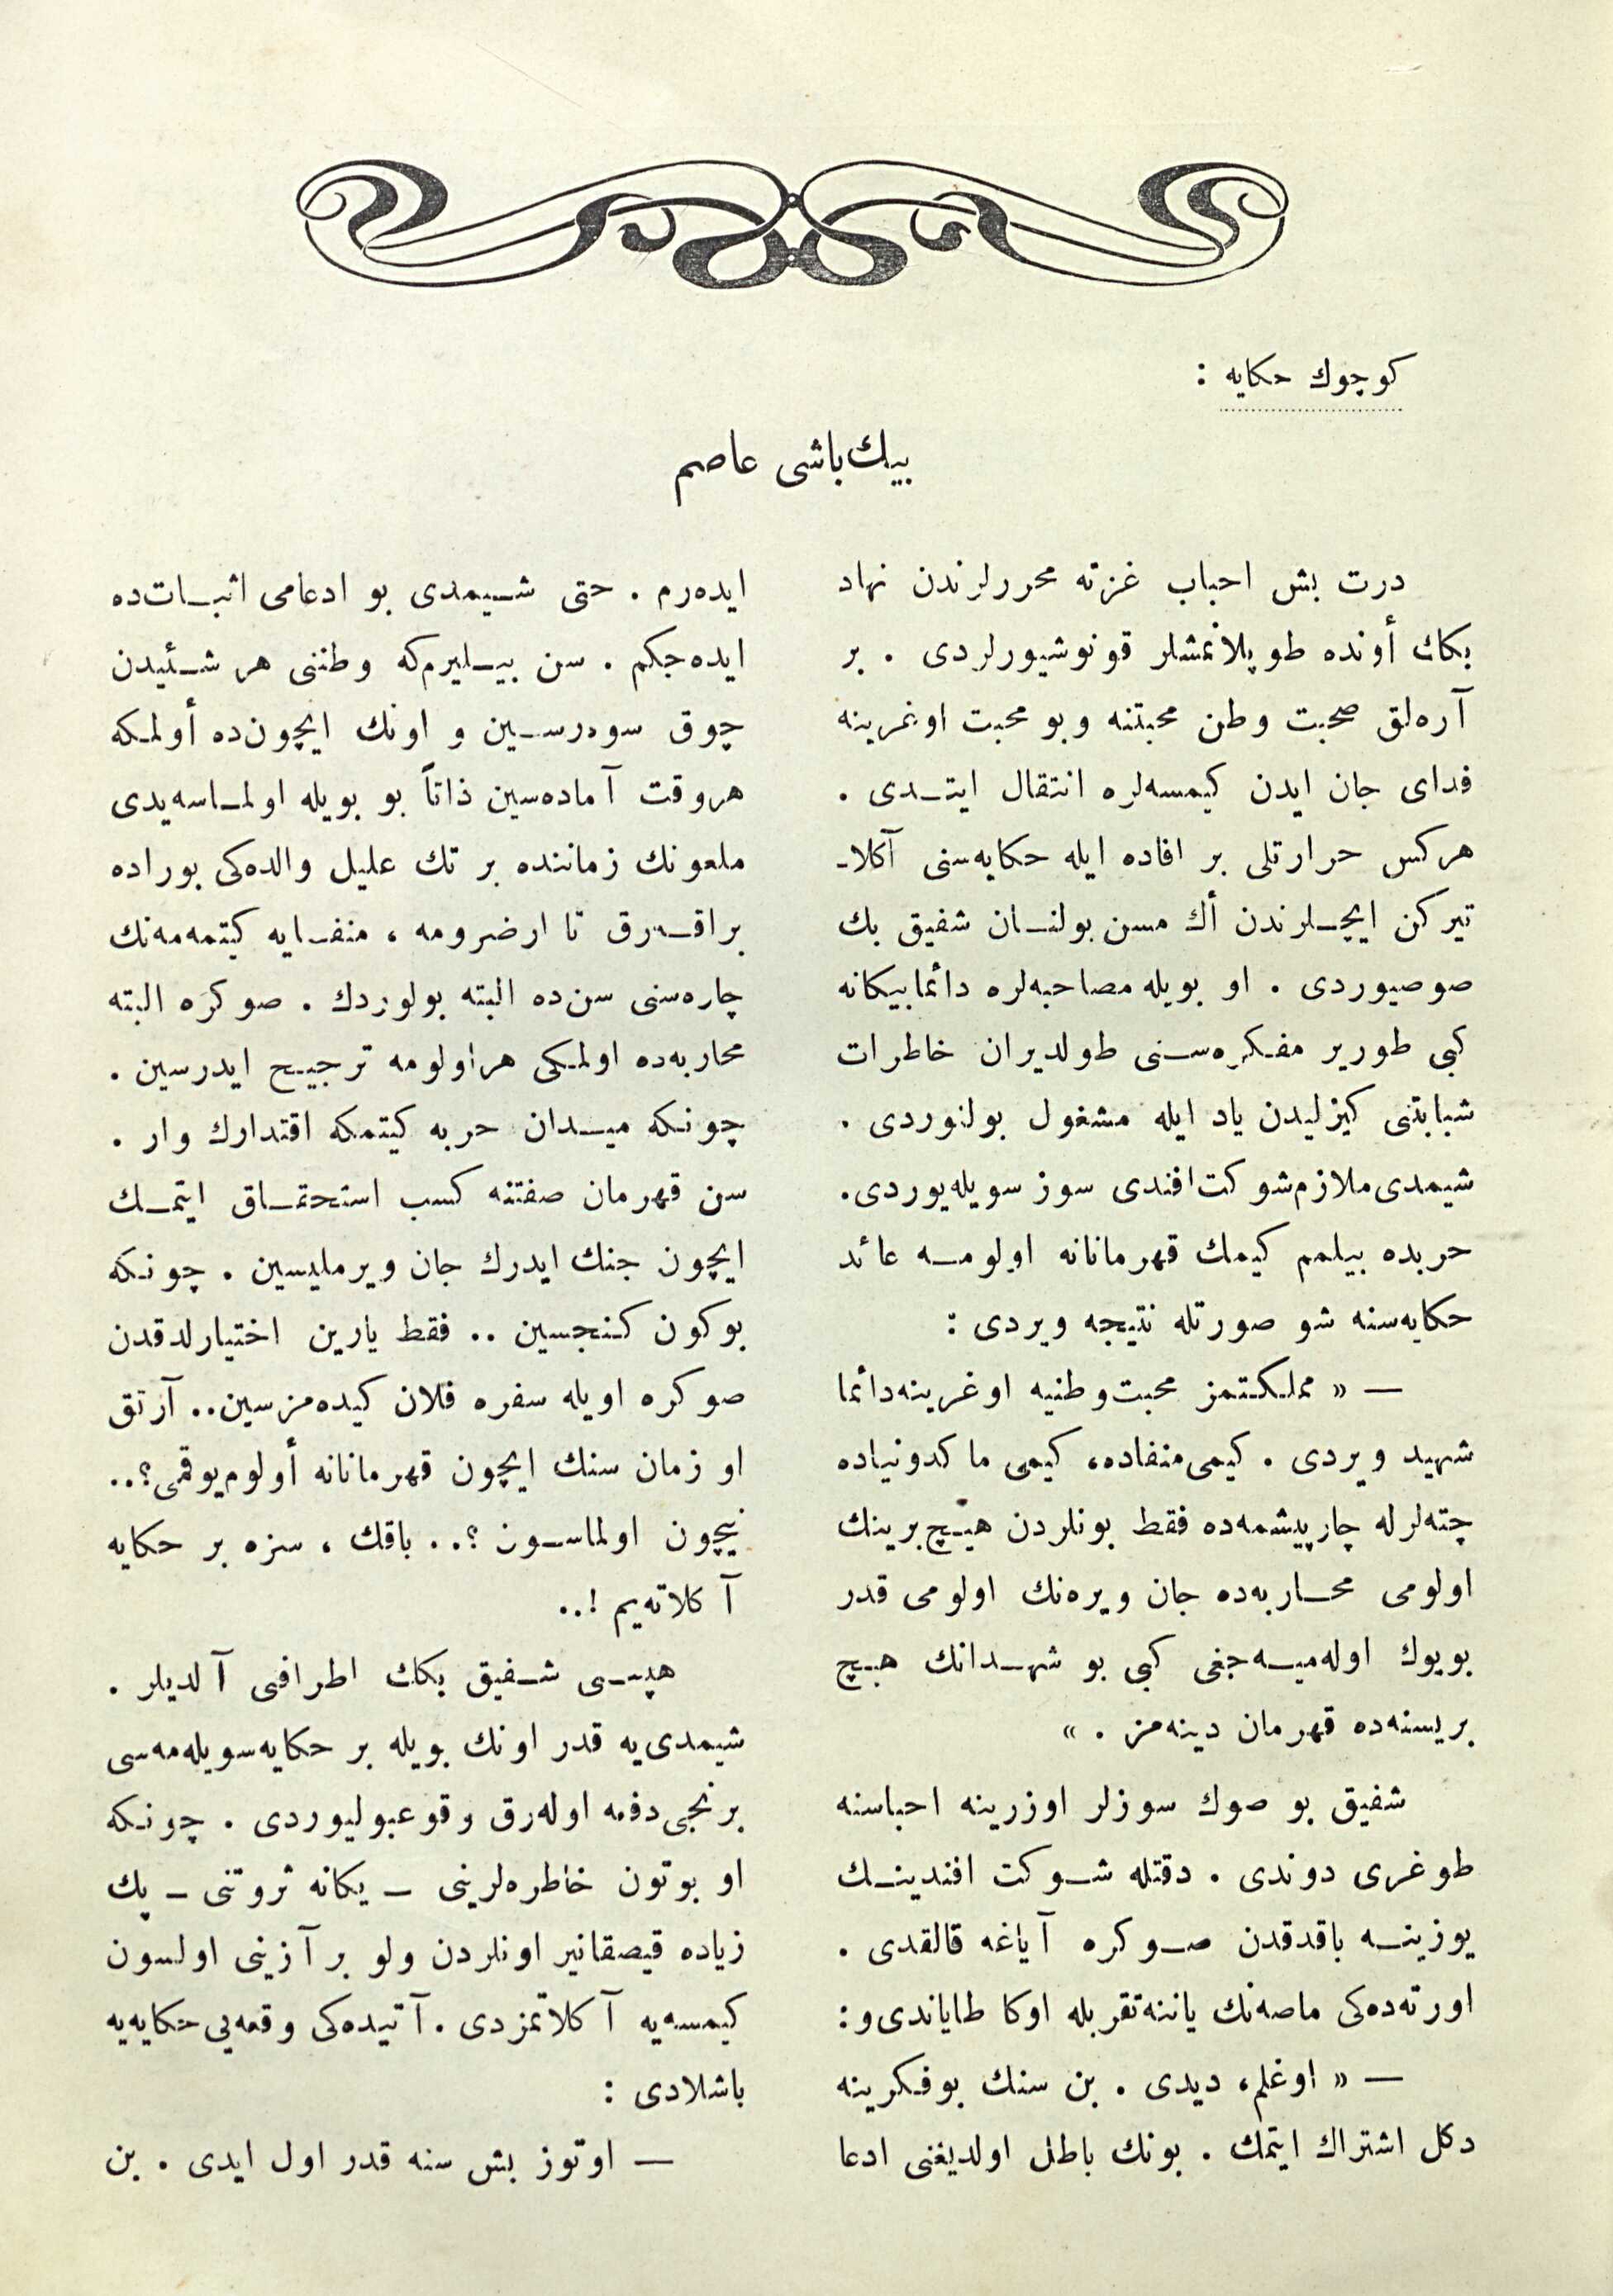 كوچوك حكايه :
بيك‌باشى عاصم
درت بش احباب غزته محررلرندن نهاد
بكك أونده طوپلانمشلر قونوشيورلردى . بر
آره‌لق صحبت وطن محبتنه وبو محبت اوغرينه
فداى جان ايدن كيمسه‌لره انتقال ايتدى .
هركس حرارتلى بر افاده ايله حكايه‌سنى آكلا-
تيركن ايچلرندن أك مسن بولنان شفيق بك
صوصيوردى . او بويله مصاحبه‌لره دائما بيكانه
كبى طورير مفكره‌سنى طولديران خاطرات
شبابتنى كيزليدن ياد ايله مشغول بولنوردى .
شيمدى ملازم شوكت افندى سوز سويله‌يوردى.
حربده بيلمم كيمك قهرمانانه اولومه عائد
حكايه‌سنه شو صورتله نتيجه ويردى :
— « مملكتمز محبت وطنيه اوغرينه دائما
شهيد ويردى . كيمى منفاده، كيمى ماكدونياده
چته‌لرله چارپيشمه‌ده فقط بونلردن هيچ برينك
اولومى محاربه‌ده جان ويره‌نك اولومى قدر
بويوك اوله‌ميه‌جغى كبى بو شهدانك هيچ
بريسنه‌ده قهرمان دينه‌مز . »
شفيق بو صوك سوزلر اوزرينه احباسنه
طوغرى دوندى . دقتله شوكت افندينك
يوزينه باقدقدن صوكره آياغه قالقدى .
اورته‌ده‌كى ماصه‌نك ياننه تقربله اوكا طاياندى و:
— « اوغلم، ديدى . بن سنك بوفكرينه
دكل اشتراك ايتمك . بونك باطل اولديغنى ادعا
ايده‌رم . حتى شيمدى بو ادعامى اثبات‌ده
ايده‌جكم . سن بيليرم‌كه وطننى هر شئيدن
چوق سودرسين و اونك ايچون‌ده أولمكه
هروقت آماده‌سين ذاتاً بو بويله اولماسه‌يدى
ملعونك زماننده بر تك عليل والده‌كى بوراده
براقه‌رق تا ارضرومه ، منفايه كيتمه‌مه‌نك
چاره‌سنى سن‌ده البته بولوردك . صوكره البته
محاربه‌ده اولمكى هر اولومه ترجيح ايدرسين .
چونكه ميدان حربه كيتمكه اقتدارك وار .
سن قهرمان صفتنه كسب استحقاق ايتمك
ايچون جنك ايدرك جان ويرمليسين . چونكه
بوكون كنجسين .. فقط يارين اختيارلدقدن
صوكره اويله سفره فلان كيده‌مزسين.. آرتق
او زمان سنك ايچون قهرمانانه أولوم يوقمى؟..
نيچون اولماسون ؟.. باقك ، سزه بر حكايه
آكلاته‌يم !..
هپسى شفيق بكك اطرافنى آلديلر .
شيمدى‌يه قدر اونك بويله بر حكايه سويله‌مه‌سى
برنجى دفعه اوله‌رق وقوعبوليوردى . چونكه
او بوتون خاطره‌لرينى – يكانه ثروتنى – پك
زياده قيصقانير اونلردن ولو بر آزينى اولسون
كيمسه‌يه آكلاتمزدى . آتيده‌كى وقعه‌يى حكايه‌يه
باشلادى :
— اوتوز بش سنه قدر اول ايدى . بن